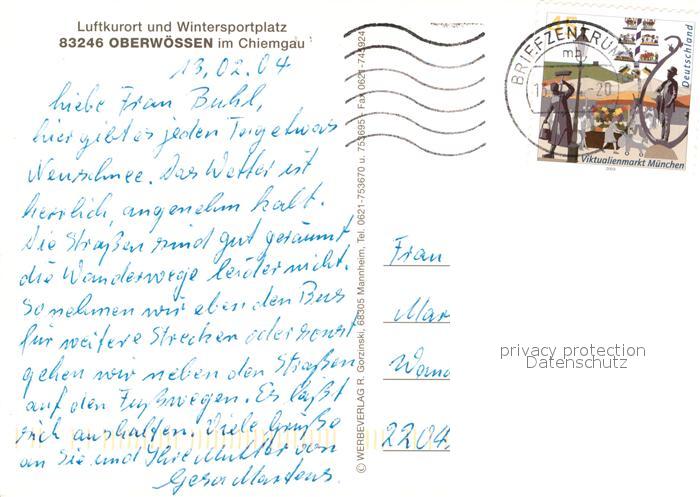 Luftkurort und Wintersportplatz
83246 OBERWÖSSEN im Chiemgau
13.02.04
Liebe Frau Buhl,
hier gibt es jeden Tag etwas
Neuschnee. Das Wetter ist
herrlich, angenehm kalt.
Die Straßen sind gut geräumt
die Wanderwege leider nicht.
So nehmen wir eben den Bus
für weitere Strecken oder sonst
gehen wir neben den Straßen
auf den Fußwegen. Es läßt
sich aushalten. Viele Grüße
an Sie und Ihre Mutter von
Gesa Martens.
© WERBEVERLAG R. Gorzinski, 68305 Mannheim, Tel. 0621-753670 u. 753695 - Fax 0621-743924
BRIEFZENTRUM
mb
45
Deutschland
Viktualienmarkt München
2003
Frau
Mar
2204
privacy protection
Datenschutz